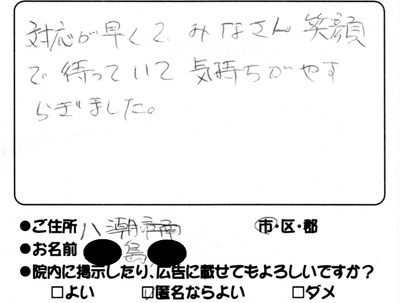 対応が早くて、みなさん笑顔
で待っていて気持ちがやす
らぎました。
●ご住所 八潮市南 市・区・郡
●お名前 島
●院内に掲示したり、広告に載せてもよろしいですか?
□よい □匿名ならよい □ダメ